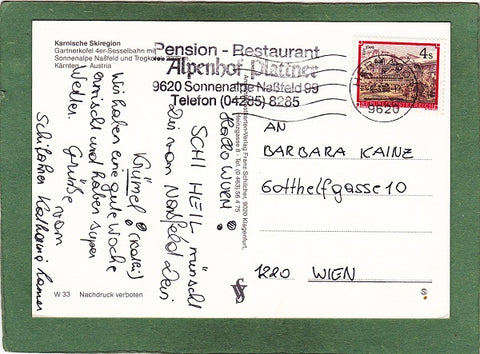 Karnische Skiregion
Gartnerkofel 4er-Sesselbahn mit
Sonnenalpe Naßfeld und Trogkofel
Kärnten – Austria
Pension - Restaurant
Alpenhof Plattner
9620 Sonnenalpe Naßfeld 99
Telefon (04285) 8285
4 S
REPUBLIK ÖSTERREICH
9620
Hallo WURM!
SCHI HEIL wünscht
Dir vom Naßfeld Dein
Krümel!
Wir haben eine gute Woche
erwischt und haben super
Wetter. Grüße vom
Schifahren Katharina
AN
BARBARA KAINZ
Gotthelfgasse 10
1220 WIEN
W 33 Nachdruck verboten